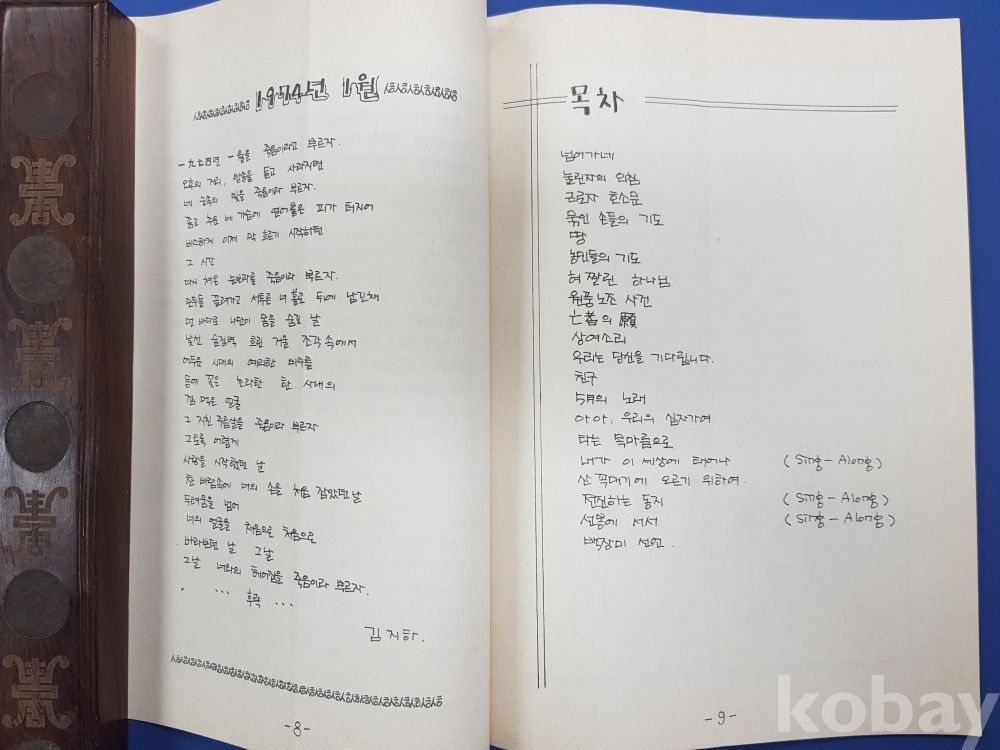 1974년 1월
一九七四년 一월을 죽음이라고 부르자.
오후의 거리, 방송을 듣고 사라지던
네 눈속의 빛을 죽음이라 부르자.
좁고 추운 네 가슴에 얼어붙은 피가 터지어
비스하게 이제 막 흐르기 시작하던
그 시간
다시 쳐온 눈보라를 죽음이라 부르자.
모두들 끌려가고 서투른 너 홀로 뒤에 남긴채
먼 바다로 나만이 몸을 숨긴 날
낯선 술집벽 흐린 거울 조각속에서
어두운 시대의 예리한 비수를
등에 꽂은 초라한 한 사내의
겁먹은 얼굴
그 지친 주름살을 죽음이라 부르자
그토록 어렵게
사랑을 시작했던 날
찬 바람속에 너의 손을 처음 잡았던 날
두려움을 넘어
너의 얼굴을 처음으로 처음으로
바라보던 날 그날
그날 너와의 헤어짐을 죽음이라 부르자.
... 후략 ...
김지하.
-8-
목차
넘어가네
눌린자의 외침
근로자 호소문
묶인 손들의 기도
땅
농민들의 기도
혀 짤린 하나님
원풍노조 사건
亡者의 願
상여소리
우리는 당신을 기다립니다.
친구
5月의 노래
아아, 우리의 십자가여
타는 목마름으로
내가 이 세상에 태어나 (Sing-Along)
산꼭대기에 오르기 위하여.
전진하는 동지 (Sing-Along)
선봉에 서서 (Sing-Along)
백장미 선언.
-9-
kobay